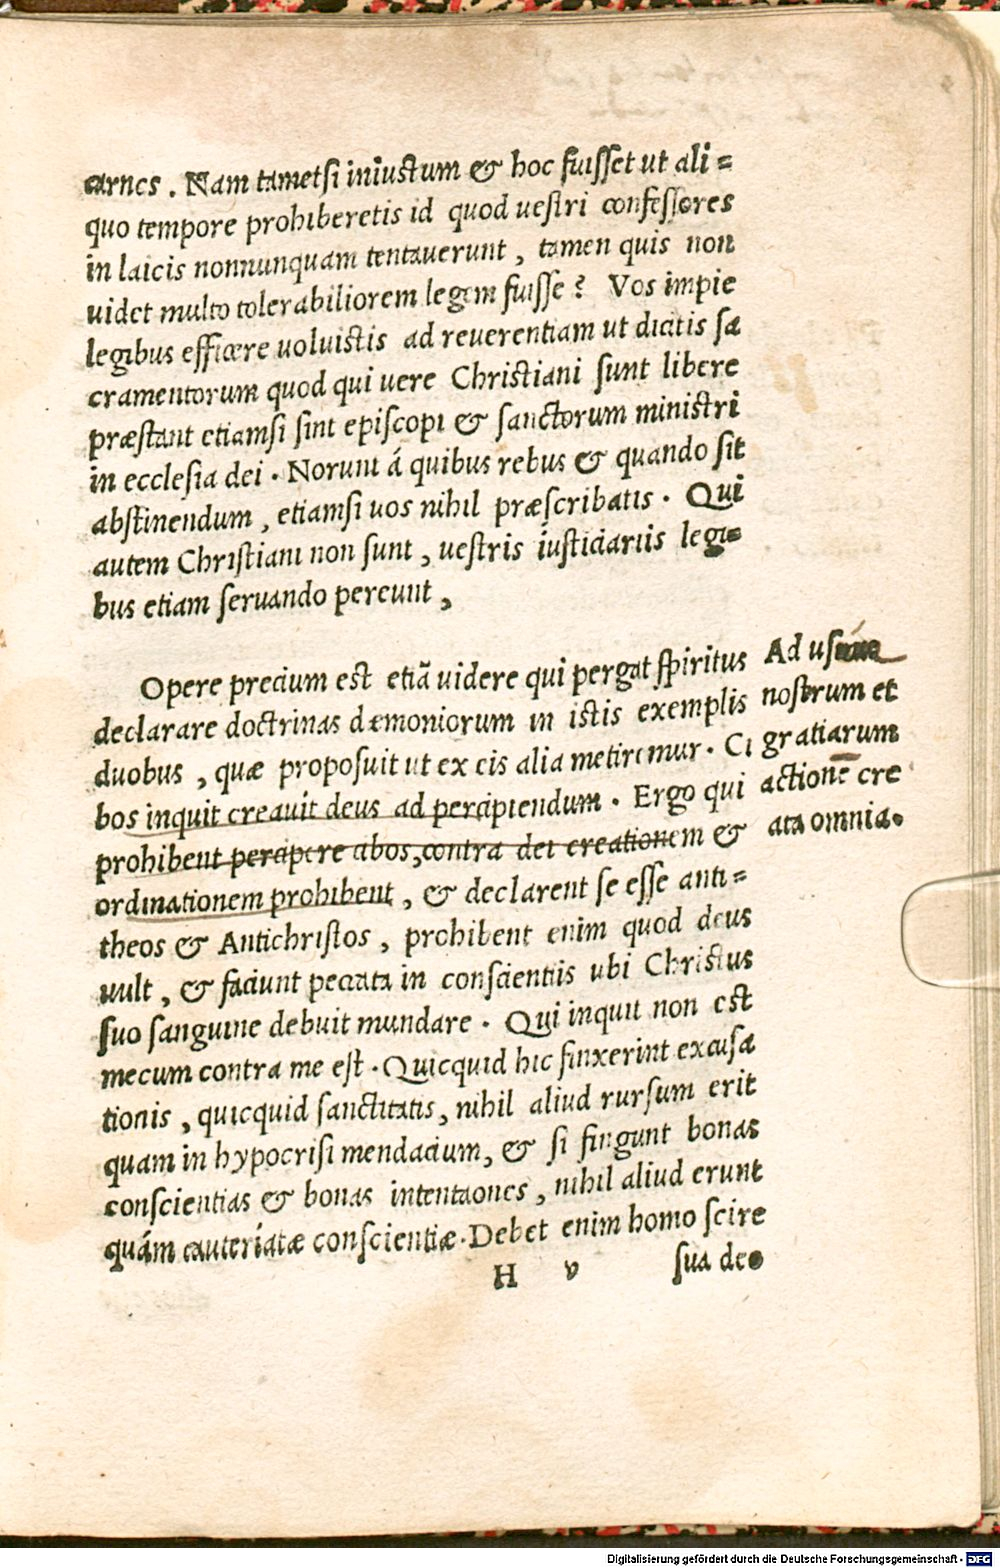 carnes. Nam tametsi iniustum & hoc fuisset ut ali=
quo tempore prohiberetis id quod uestri confessores
in laicis nonnunquam tentauerunt, tamen quis non
uidet multo tolerabiliorem legem fuisse? Vos impie
legibus efficere uoluistis ad reuerentiam ut dicitis sa
cramentorum quod qui uere Christiani sunt libere
præstant etiamsi sint episcopi & sanctorum ministri
in ecclesia dei. Norunt á quibus rebus & quando sit
abstinendum, etiamsi uos nihil præscribatis. Qui
autem Christiani non sunt, uestris iusticiariis legi=
bus etiam seruando pereunt,
Opere precium est etiã uidere qui pergat spiritus
declarare doctrinas dæmoniorum in istis exemplis
duobus, quæ proposuit ut ex eis alia metiremur. Ci
bos inquit creauit deus ad percipiendum. Ergo qui
prohibent percipere cibos, contra dei creationem &
ordinationem prohibent, & declarent se esse anti=
theos & Antichristos, prohibent enim quod deus
uult, & faciunt peccata in conscientiis ubi Christus
suo sanguine debuit mundare. Qui inquit non est
mecum contra me est. Quicquid hic finxerint excusa
tionis, quicquid sanctitatis, nihil aliud rursum erit
quam in hypocrisi mendacium, & si fingunt bonas
conscientias & bonas intentiones, nihil aliud erunt
quám cauteriatæ conscientiæ. Debet enim homo scire
H v sua de
Ad usum
nostrum et
gratiarum
actione cre
ata omnia.
Digitalisierung gefördert durch die Deutsche Forschungsgemeinschaft - DFG